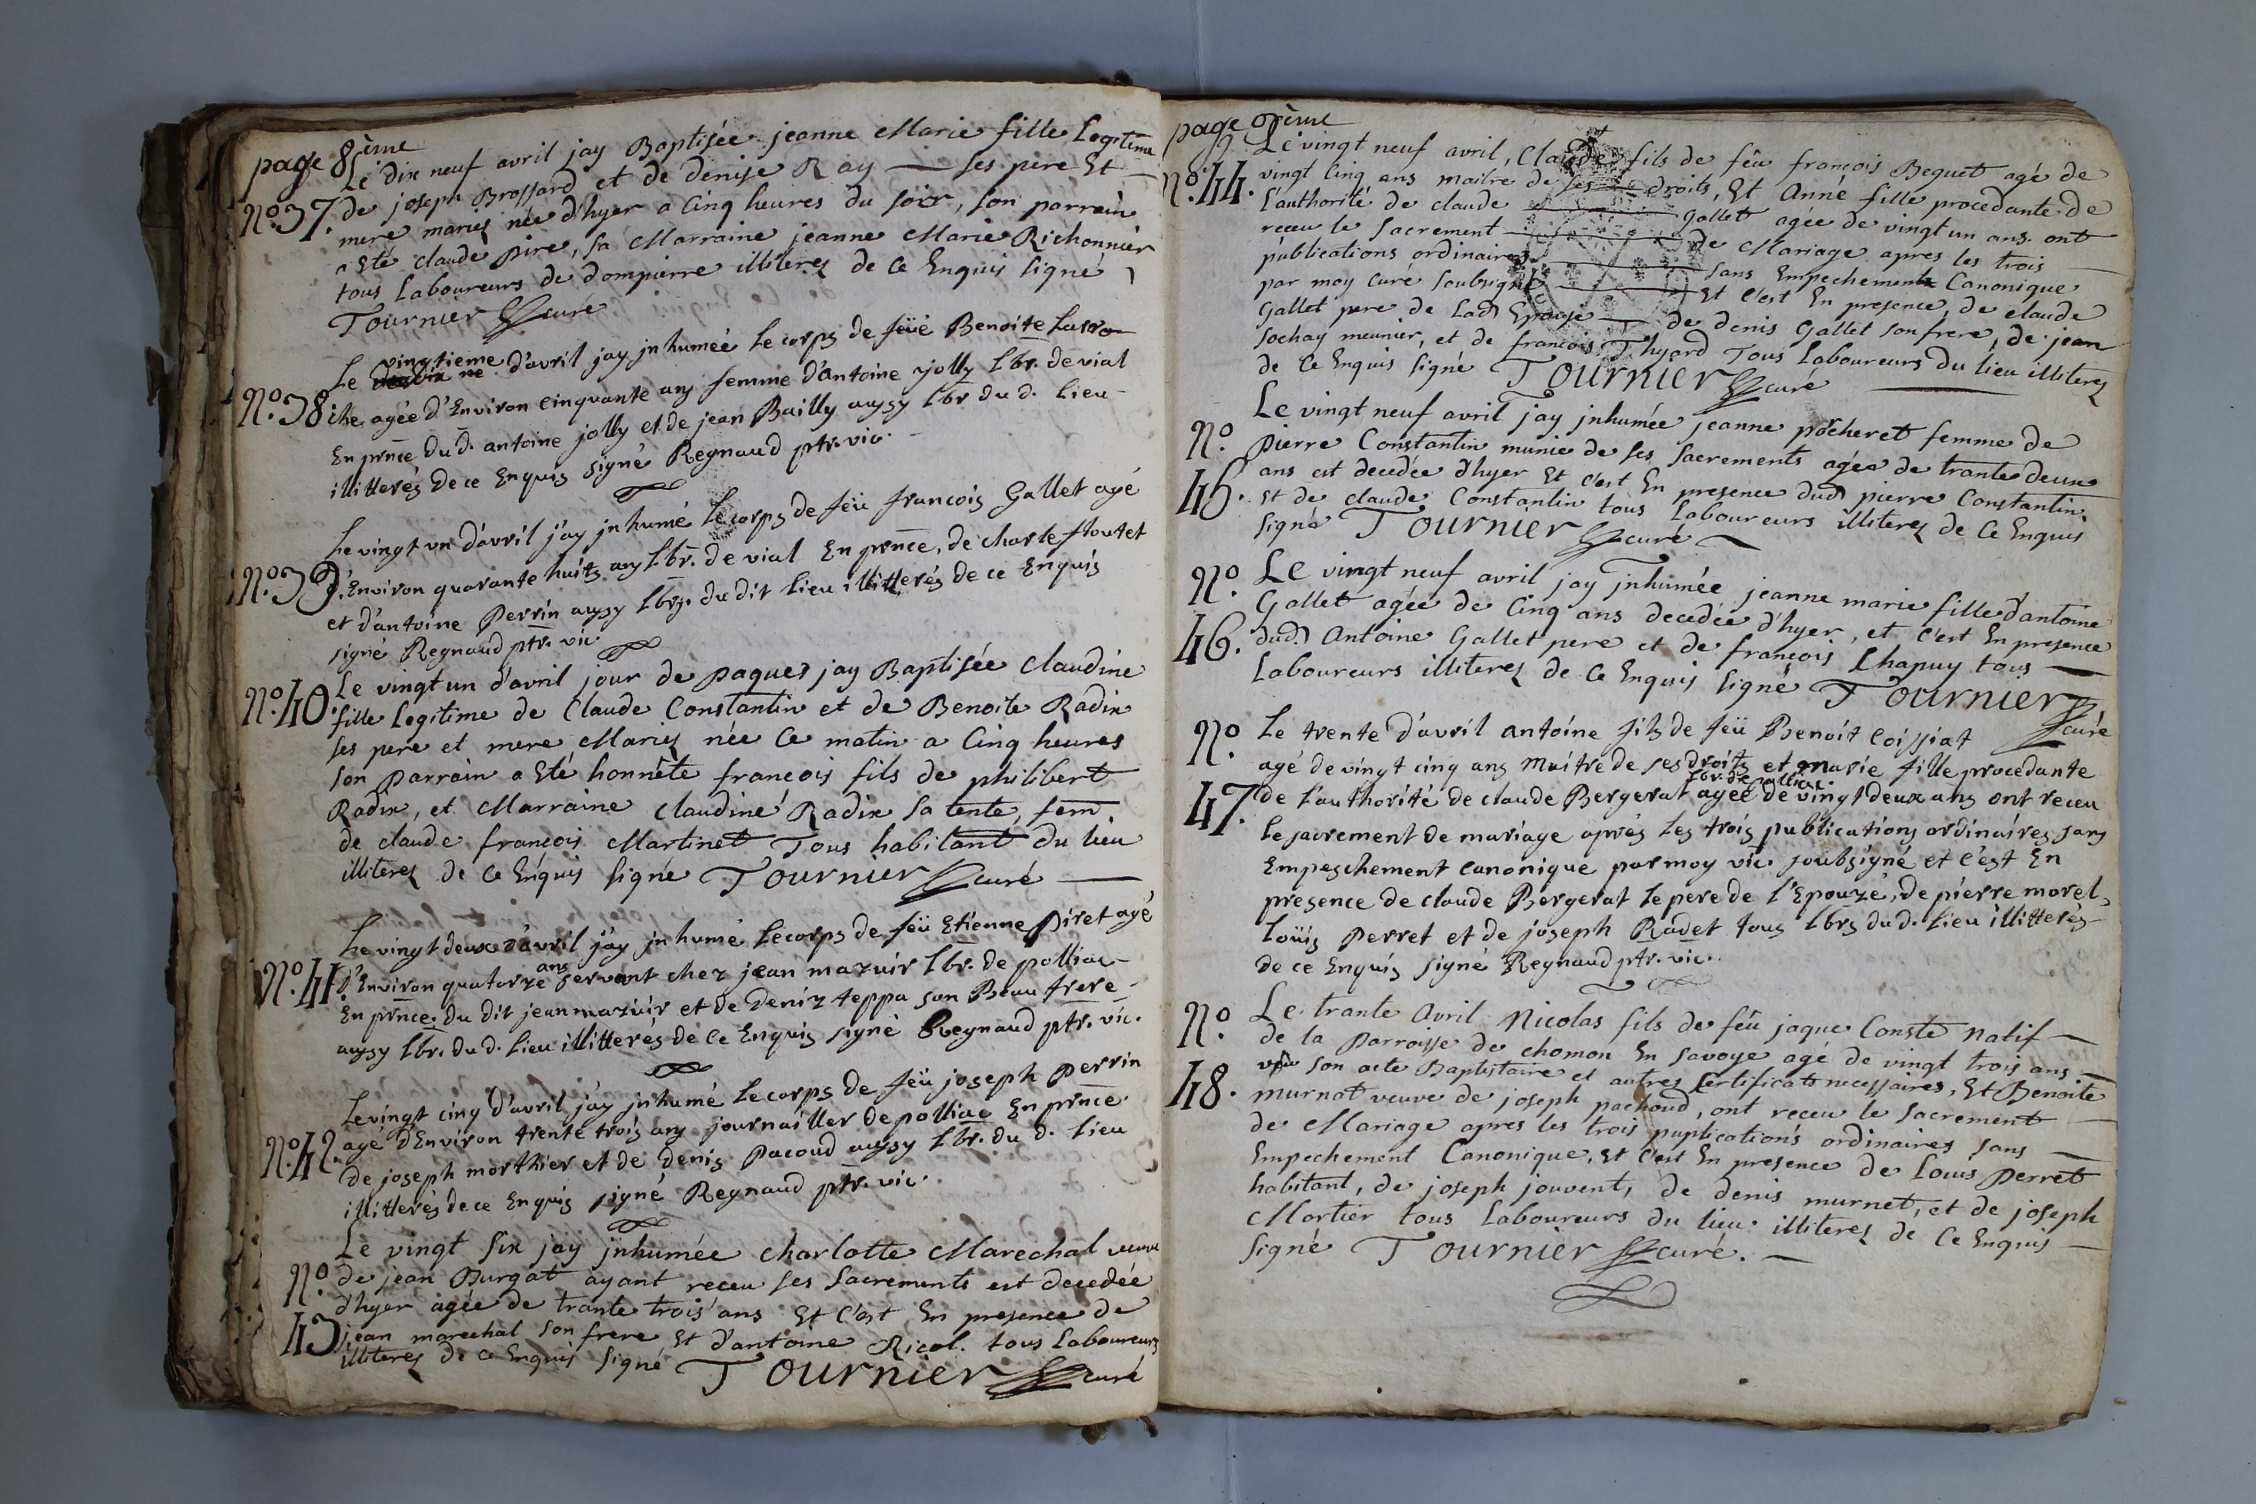 page 8ème
Le dix neuf avril jay Baptisée jeanne Marie fille Legitime
No. 37. de joseph Brossard et de denise Ray ses pere Et
mere mariez née d'hyer a Cinq heures du soir, son parrain
a Eté claude pire, sa Marraine jeanne Marie Richonnier
tous Laboureurs de dompierre illiterez de Ce Enquis signé
Tournier curé
Le vingtieme d'avril jay jnhumée Le corps de feüe Benoite
No. 38 agée d'Environ cinquante ans femme d'antoine jolly Lbr. de vial
En prnce du d. antoine jolly et de jean Bailly aussy Lbr du d. Lieu
illitterés de ce Enquis signé Regnaud ptr. vic.
Le vingt un d'avril j'ay jnhumé Le corps de feü francois Gallet agé
No. 39 d'Environ quarante huits ans Lbr. de vial En prnce, de charle floutet
et d'antoine Perrin aussy Lbrs. du dit Lieu illitterés de ce Enquis
signé Regnaud ptr. vic.
Le vingt un d'avril jour de paques jay Baptisée Claudine
No. 40. fille Legitime de Claude Constantin et de Benoite Radix
ses pere et mere Mariez née Ce matin a Cinq heures
son parrain a Eté honnête francois fils de philibert
Radix, et Marraine Claudine Radix sa tente, fem
de claude francois Martinet Tous habitant du lieu
illiterez de Ce Enquis signé Tournier curé
Le vingt deux d'avril j'ay jnhumé Le corps de feü Etienne Piret agé
No. 41 d'Environ quatorze ans servant chez jean mazuir Lbr. de polliac
En prnce. du dit jean mazuir et de Deniz teppa son Beau frere
aussy Lbr. du d. Lieu illitterés de Ce Enquis signé Regnaud ptr. vic.
Le vingt cinq d'avril j'ay jnhumé Le corps de feü joseph Perrin
No. 42. agé d'Environ trente trois ans journaillier de polliac En prnce
de joseph morthier et de denis Pacoud aussy Lbr. du d. Lieu
illitterés de ce Enquis signé Regnaud ptr. vic.
Le vingt six jay jnhumée Charlotte Marechal veuve
No. de jean Burgat ayant receu ses Sacrements est decedée
d'hyer agée de trante trois ans Et C'est En presence de
43 jean marechal son frere Et d'antoine Ricol. tous Laboureurs
illiterez de Ce Enquis signé Tournier curé
page 9ème
Le vingt neuf avril, Claude fils de feu françois Beguet agé de
No. 44. vingt Cinq ans maitre de ses droits, Et Anne fille procedante de
L'authorité de claude Gallet agée de vingt un ans. ont
receu le Sacrement de Mariage apres les trois
publications ordinaires sans Empechements Canonique
par moy curé soubsigné Et C'est En presence de claude
Gallet pere de Lad Epouse de denis Gallet son frere, de jean
Sochay meunier, et de francois Thyard Tous Laboureurs du lieu illiterez
de Ce Enquis signé Tournier curé
Le vingt neuf avril jay jnhumée jeanne pocheret femme de
No. pierre Constantin munie de ses Sacrements agée de trante deux
ans est decedée d'hyer Et C'est En presence dud pierre Constantin
45. Et de claude Constantin tous Laboureurs illiterez de Ce Enquis
signé Tournier curé
No. Le vingt neuf avril jay jnhumée jeanne marie fille d'antoine
Gallet agée de Cinq ans decedée d'hyer, et C'est En presence
46. dud Antoine Gallet pere et de francois Chapuy tous
Laboureurs illiterez de Ce Enquis signé Tournier
curé
No. Le trente d'avril antoine fils de feü Benoit Coissiat
agé de vingt cinq ans Maitre de ses droits et marie fille procedante
Lbr. de polliac
47. de l'authorité de claude Bergerat agée de vingt deux ans ont receu
Le sacrement de mariage après Les trois publications ordinaires sans
Empeschement canonique par moy vic. soubsigné et c'est En
presence de claude Bergerat Le pere de l'Epouzé, de pierre morel,
Loüis Perret et de joseph Radet tous Lbrs du d. Lieu illitterés
de ce Enquis signé Regnaud ptr. vic.
No. Le trante Avril Nicolas fils de feu jaque Conste natif
de la Parroisse de chomon En Savoye agé de vingt trois ans
vû son acte Baptistaire et autres Certificats necessaires, Et Benoite
48. murnat veuve de joseph pachoud, ont receu le Sacrement
de Mariage apres les trois puplications ordinaires sans
Empechement Canonique, Et C'est En presence de Louis Perret
habitant, de joseph jouvent, de denis murnet, et de joseph
Mortier tous Laboureurs du lieu illiterez de Ce Enquis
signé Tournier curé.